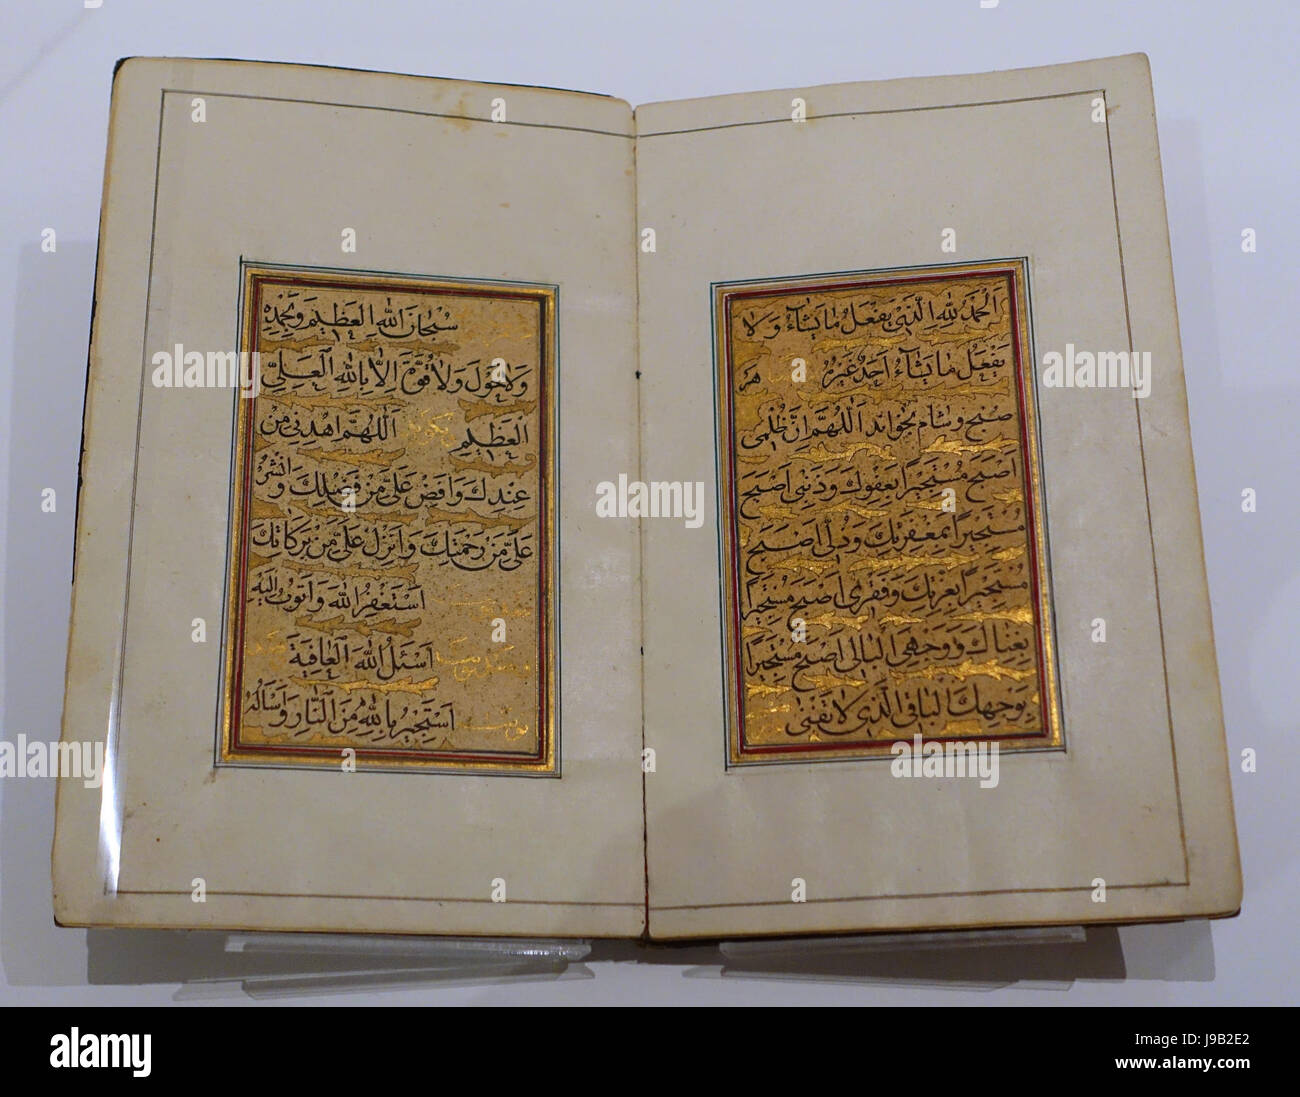 الحمد لله الذي يفعل ما يشاء ولا
يفعل ما يشاء احد غيره هر
صبح وشام بخواند اللهم ان ظلمي
اصبح مستجيرا بعفوك وذنبي اصبح
مستجيرا بمغفرتك وذلي اصبح
مستجيرا بعزتك وفقري اصبح مستجيرا
بغناك ووجهي البالي اصبح مستجيرا
بوجهك الباقي الذي لا يفنى
سبحان الله العظيم وبحمده
ولا حول ولا قوة الا بالله العلي
العظيم بگويد اللهم اهدني من
عندك وافض علي من فضلك وانشر
علي من رحمتك وانزل علي من بركاتك
استغفر الله واتوب اليه
اسئل الله العافية
استجير بالله من النار واسأله
a alamy stock photo
alamy
Image ID: J9B2E2
www.alamy.com